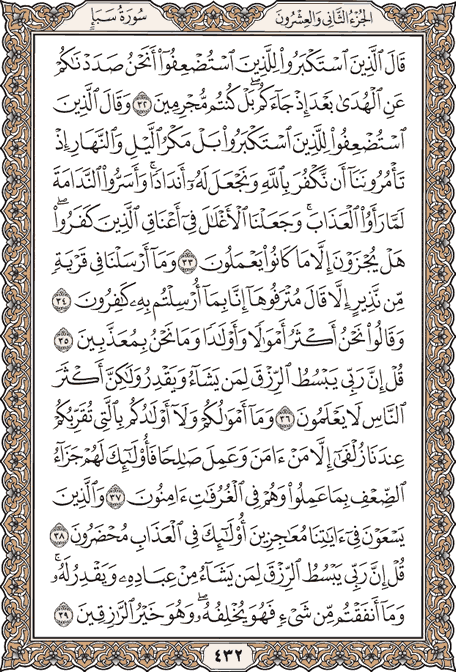 الجُزءُ الثَّانِي وَالعِشْرُونَ سُورَةُ سَبَإٍ
قَالَ الَّذِينَ اسْتَكْبَرُوا لِلَّذِينَ اسْتُضْعِفُوا أَنَحْنُ صَدَدْنَاكُمْ
عَنِ الْهُدَىٰ بَعْدَ إِذْ جَاءَكُم ۖ بَلْ كُنتُم مُّجْرِمِينَ ٣٢ وَقَالَ الَّذِينَ
اسْتُضْعِفُوا لِلَّذِينَ اسْتَكْبَرُوا بَلْ مَكْرُ اللَّيْلِ وَالنَّهَارِ إِذْ
تَأْمُرُونَنَا أَن نَّكْفُرَ بِاللَّهِ وَنَجْعَلَ لَهُ أَندَادًا ۚ وَأَسَرُّوا النَّدَامَةَ
لَمَّا رَأَوُا الْعَذَابَ ۚ وَجَعَلْنَا الْأَغْلَالَ فِي أَعْنَاقِ الَّذِينَ كَفَرُوا ۖ
هَلْ يُجْزَوْنَ إِلَّا مَا كَانُوا يَعْمَلُونَ ٣٣ وَمَا أَرْسَلْنَا فِي قَرْيَةٍ
مِّن نَّذِيرٍ إِلَّا قَالَ مُتْرَفُوهَا إِنَّا بِمَا أُرْسِلْتُم بِهِ كَافِرُونَ ٣٤
وَقَالُوا نَحْنُ أَكْثَرُ أَمْوَالًا وَأَوْلَادًا وَمَا نَحْنُ بِمُعَذَّبِينَ ٣٥
قُلْ إِنَّ رَبِّي يَبْسُطُ الرِّزْقَ لِمَن يَشَاءُ وَيَقْدِرُ وَلَٰكِنَّ أَكْثَرَ
النَّاسِ لَا يَعْلَمُونَ ٣٦ وَمَا أَمْوَالُكُمْ وَلَا أَوْلَادُكُم بِالَّتِي تُقَرِّبُكُمْ
عِندَنَا زُلْفَىٰ إِلَّا مَنْ ءَامَنَ وَعَمِلَ صَالِحًا فَأُولَٰئِكَ لَهُمْ جَزَاءُ
الضِّعْفِ بِمَا عَمِلُوا وَهُمْ فِي الْغُرُفَاتِ ءَامِنُونَ ٣٧ وَالَّذِينَ
يَسْعَوْنَ فِي ءَايَاتِنَا مُعَاجِزِينَ أُولَٰئِكَ فِي الْعَذَابِ مُحْضَرُونَ ٣٨
قُلْ إِنَّ رَبِّي يَبْسُطُ الرِّزْقَ لِمَن يَشَاءُ مِنْ عِبَادِهِ وَيَقْدِرُ لَهُ ۚ
وَمَا أَنفَقْتُم مِّن شَيْءٍ فَهُوَ يُخْلِفُهُ ۖ وَهُوَ خَيْرُ الرَّازِقِينَ ٣٩
٤٣٢